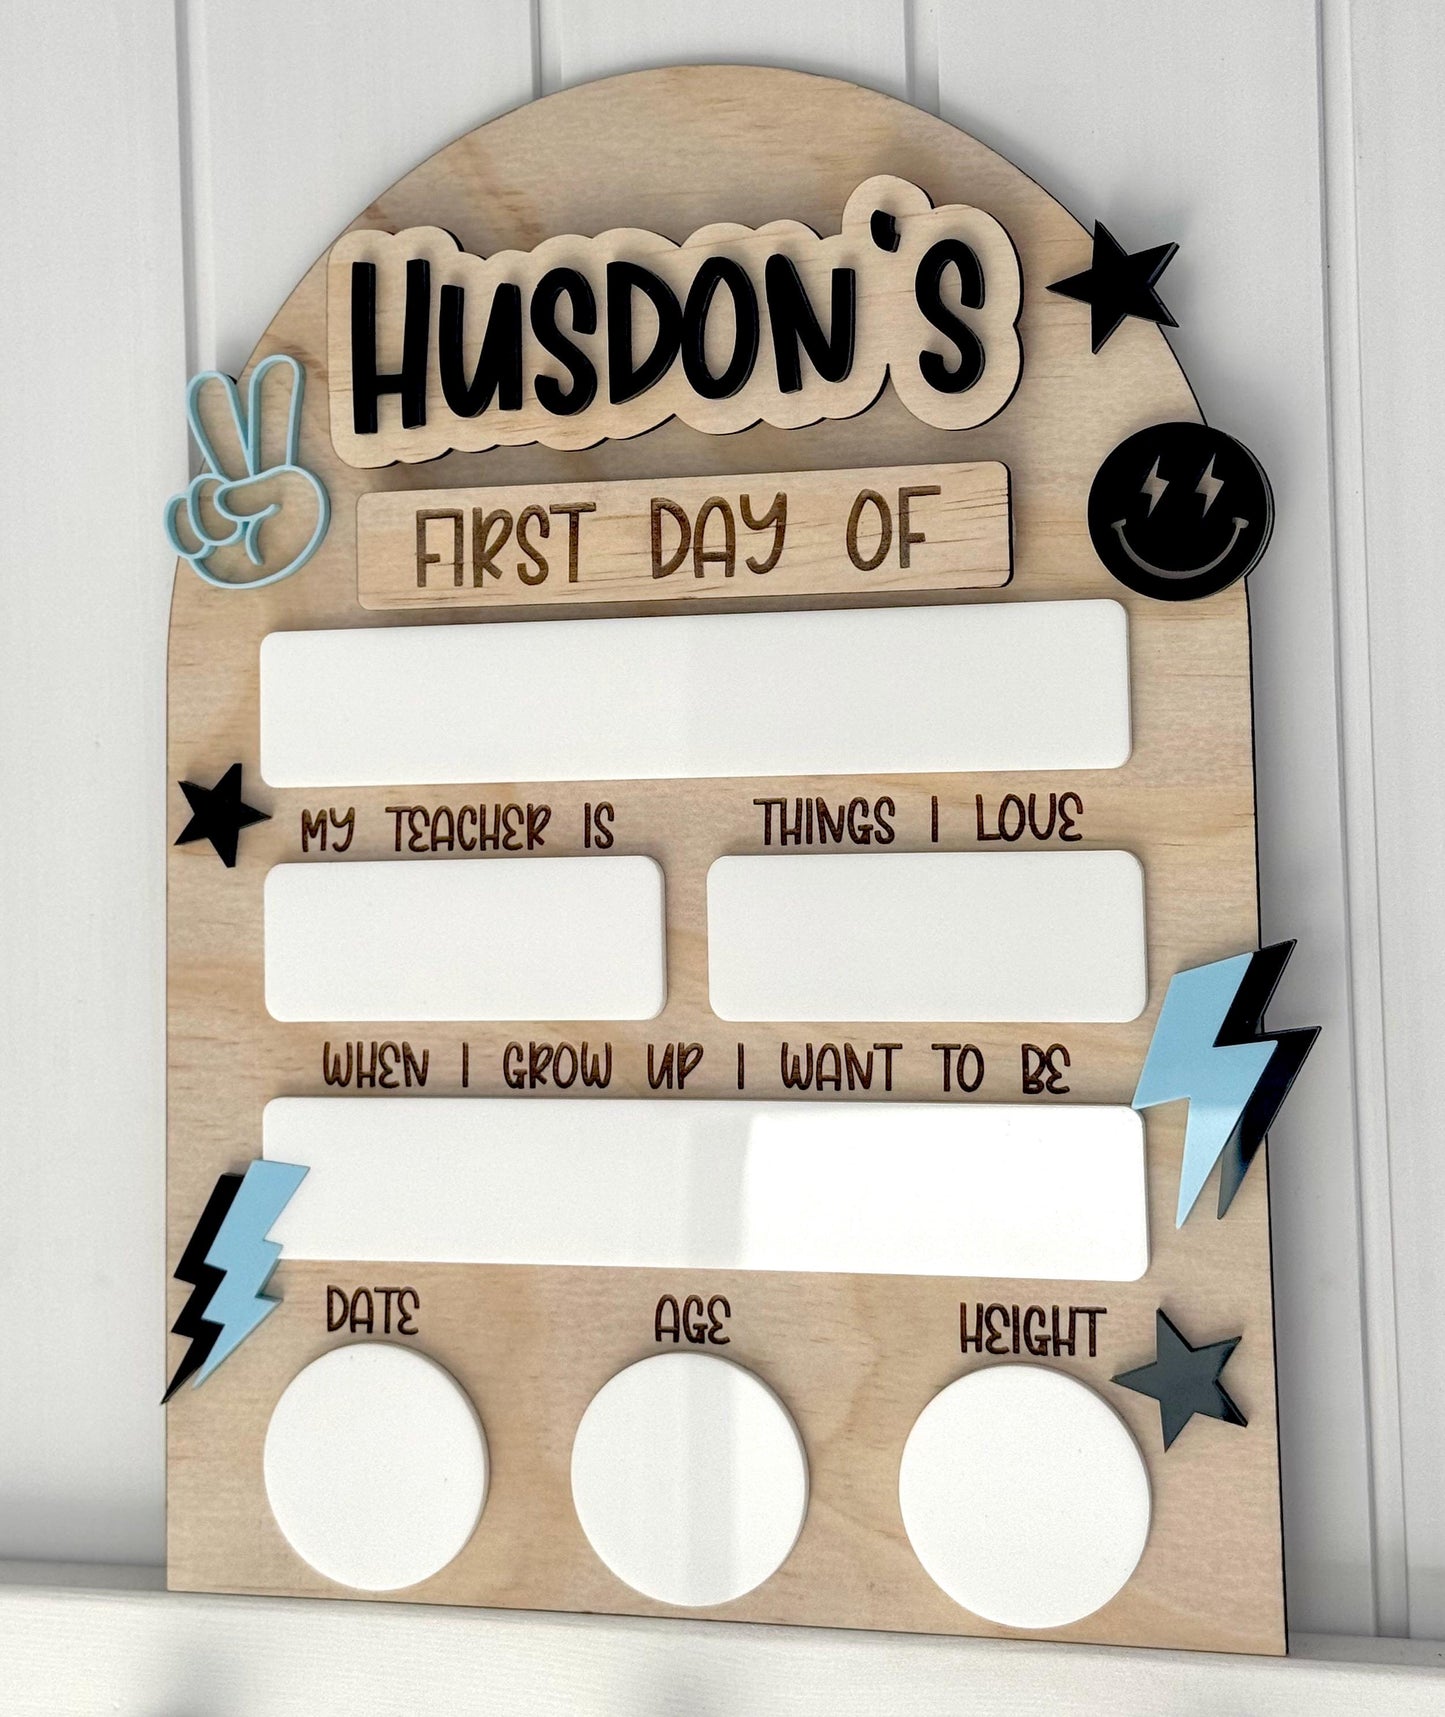 HUSDON'S
FIRST DAY OF
MY TEACHER IS THINGS I LOVE
WHEN I GROW UP I WANT TO BE
DATE AGE HEIGHT